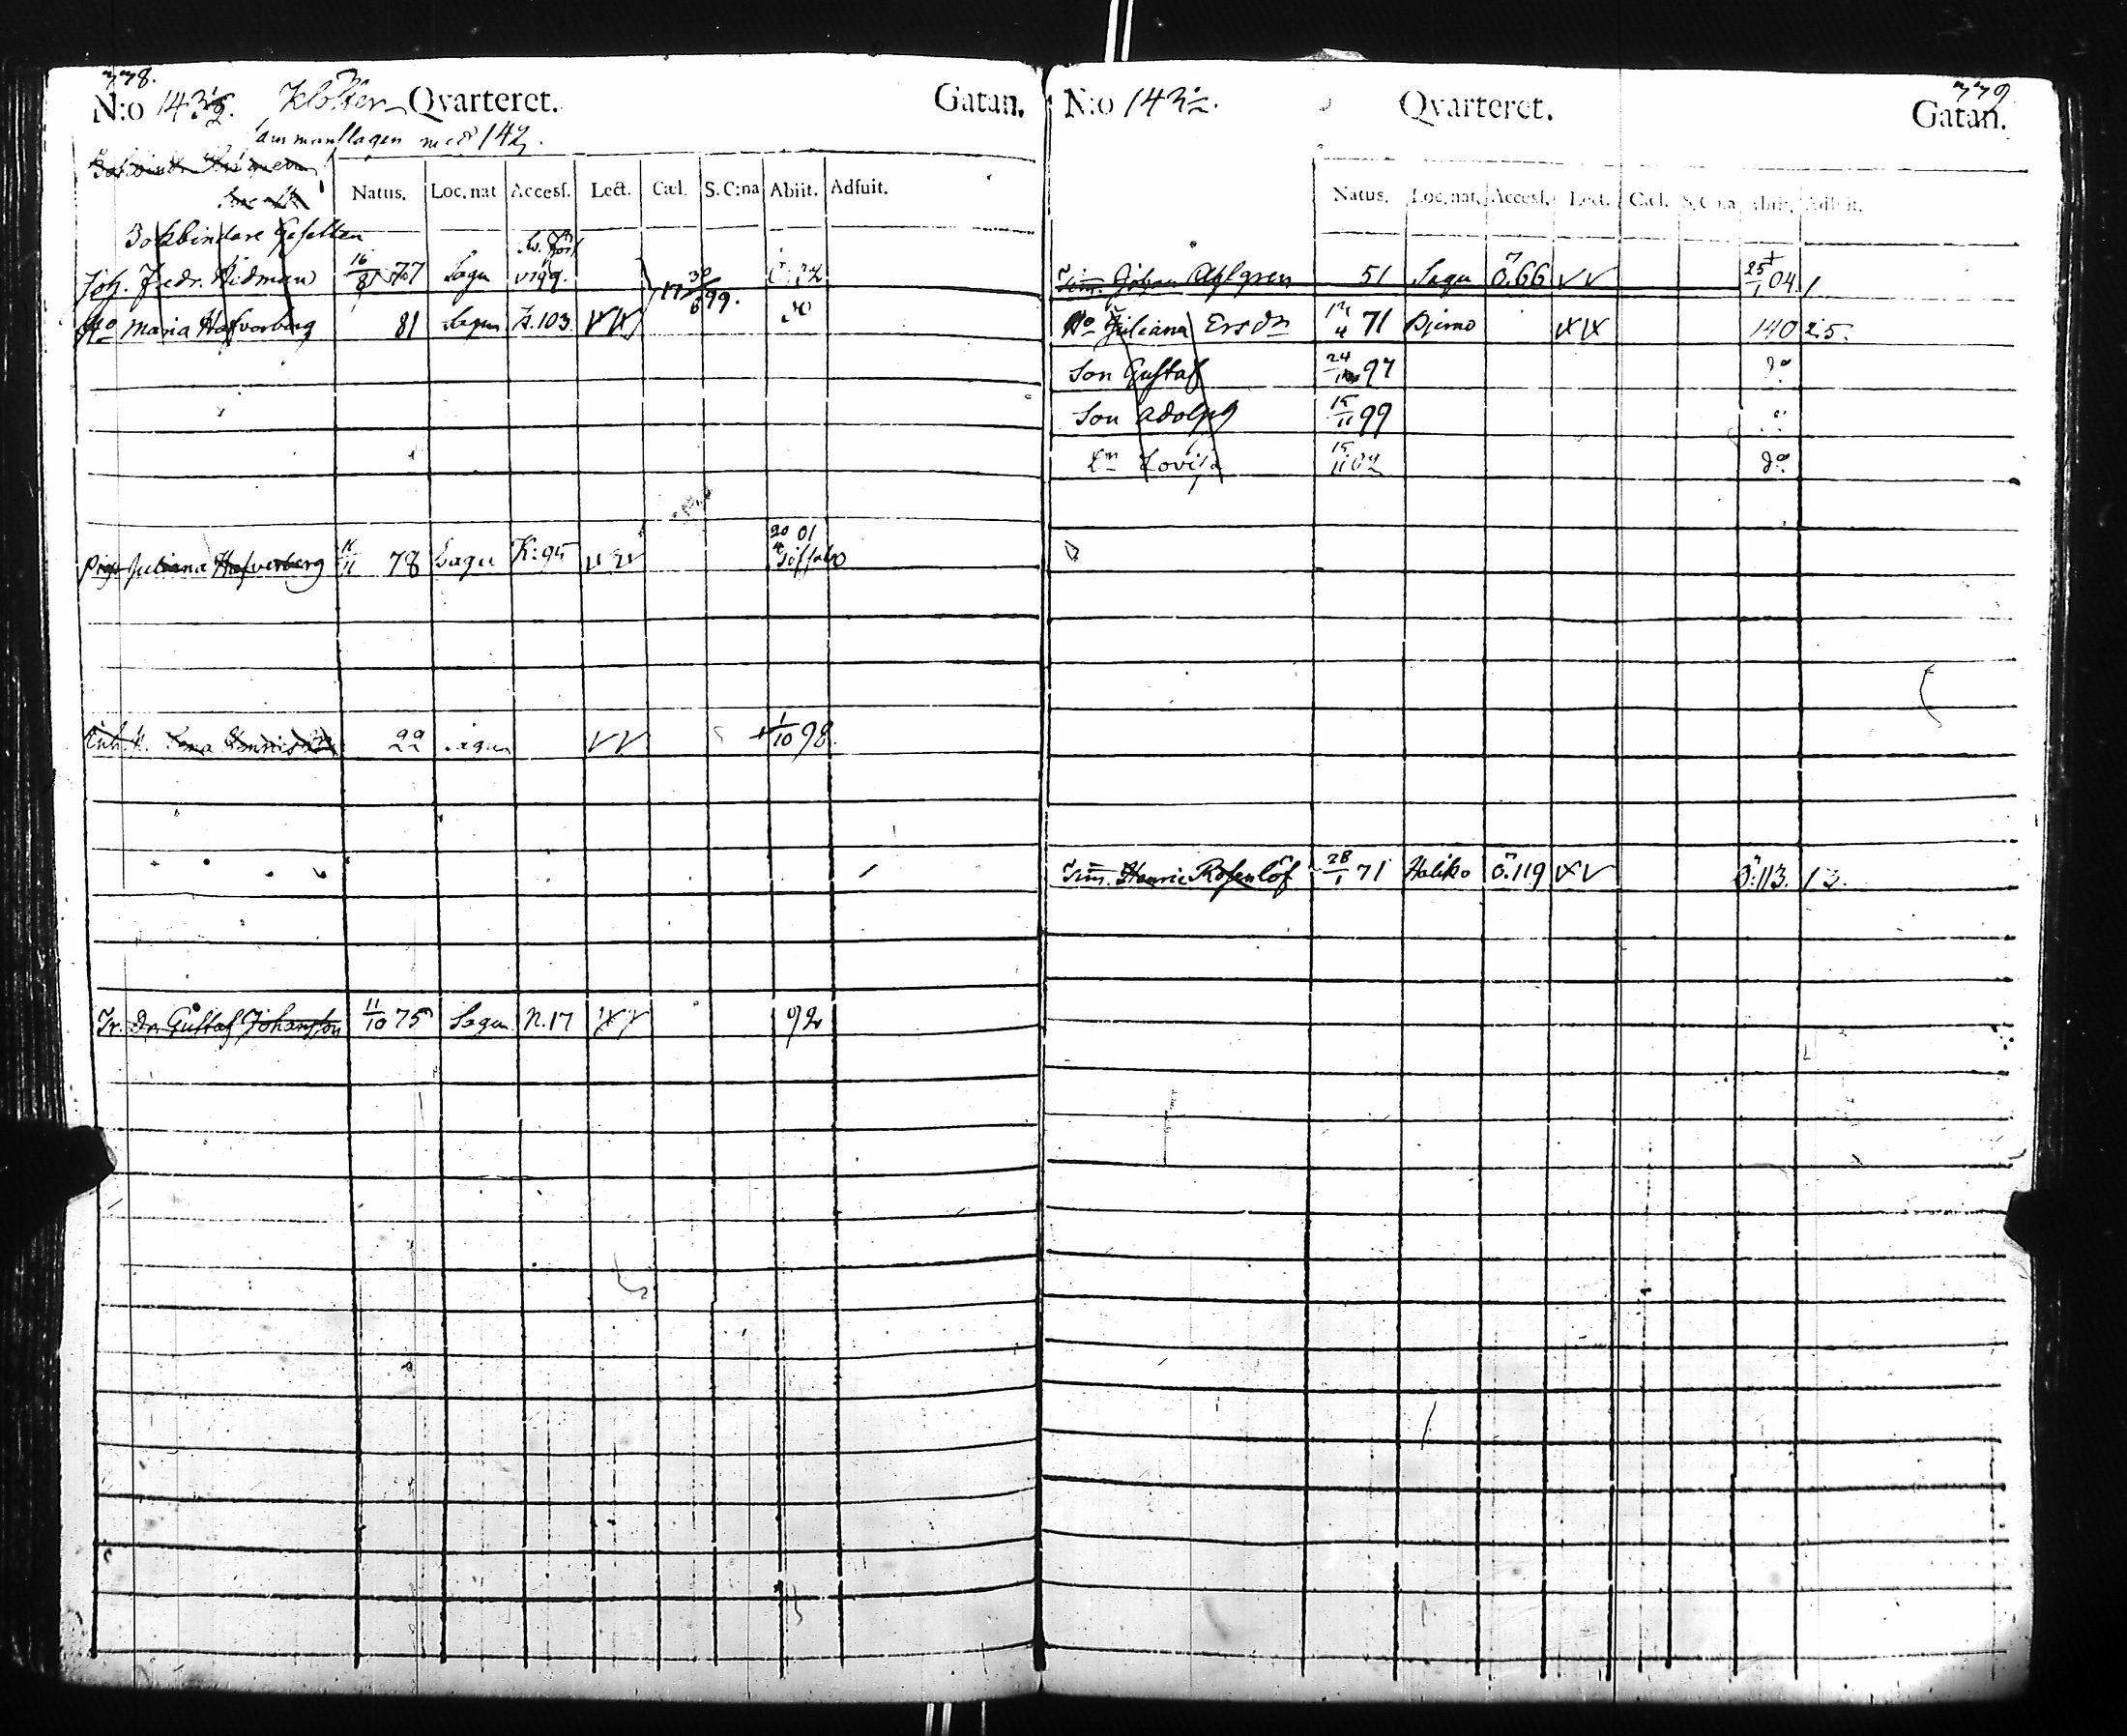 778.
N:o 143½. Kloster Qvarteret. Gatan.
Sammanslagen med 142.
Natus. Loc. nat Accesſ. Lect. Cæl. S. C:na Abiit. Adfuit.
Bokbindare Gesellen
Joh. Fredr. Widman 16/8 77 Sagu
H:o Maria Hafverberg 81 Sagu K.103
30/6 99.
Pig. Juliana Hafverberg 11 78 Sagu K:95 20/4 01
22 1/10 98.
Tr. Dr. Gustaf Johansson 11/10 75 Sagu N.17 92
779
N:o 143½. Qvarteret. Gatan.
Natus. Loc. nat. Accesſ. Lect. Cæl. S. C:na Abiit. Adfuit.
Tim. Johan Ahlgren 51 Sagu Ö.66 25/1 04. 1
H:o Juliana Ersdr 71 Bjerno 140 25.
Son Gustaf 24 97 do
Son Adolph 15/11 99 do
Dr Lovisa 15/11 02 do
Tim. Henric Rosenlöf 28/1 71 Haliko Ö.119 Ö:113. 13.